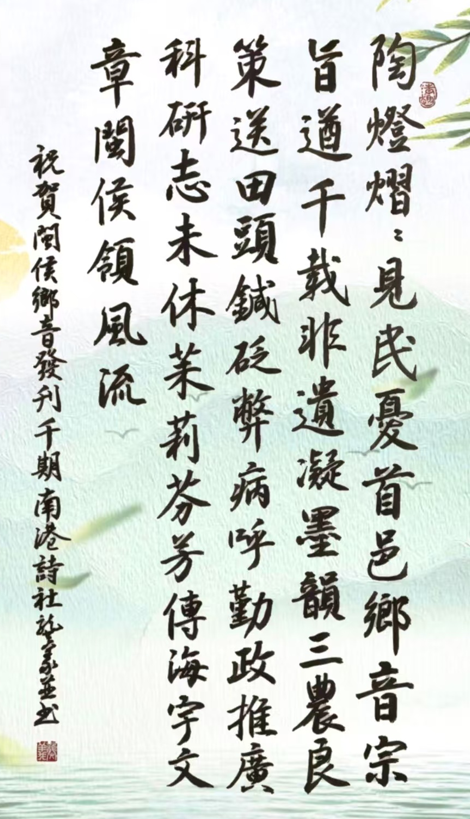 陶燈熠々見民憂首邑鄉音宗
旨遒千載非遺凝墨韻三農良
策送田頭鍼砭弊病呼勤政推廣
科研志未休茉莉芬芳傳海宇文
章閩侯領風流
祝賀閩侯鄉音發刊千期南港詩社並書